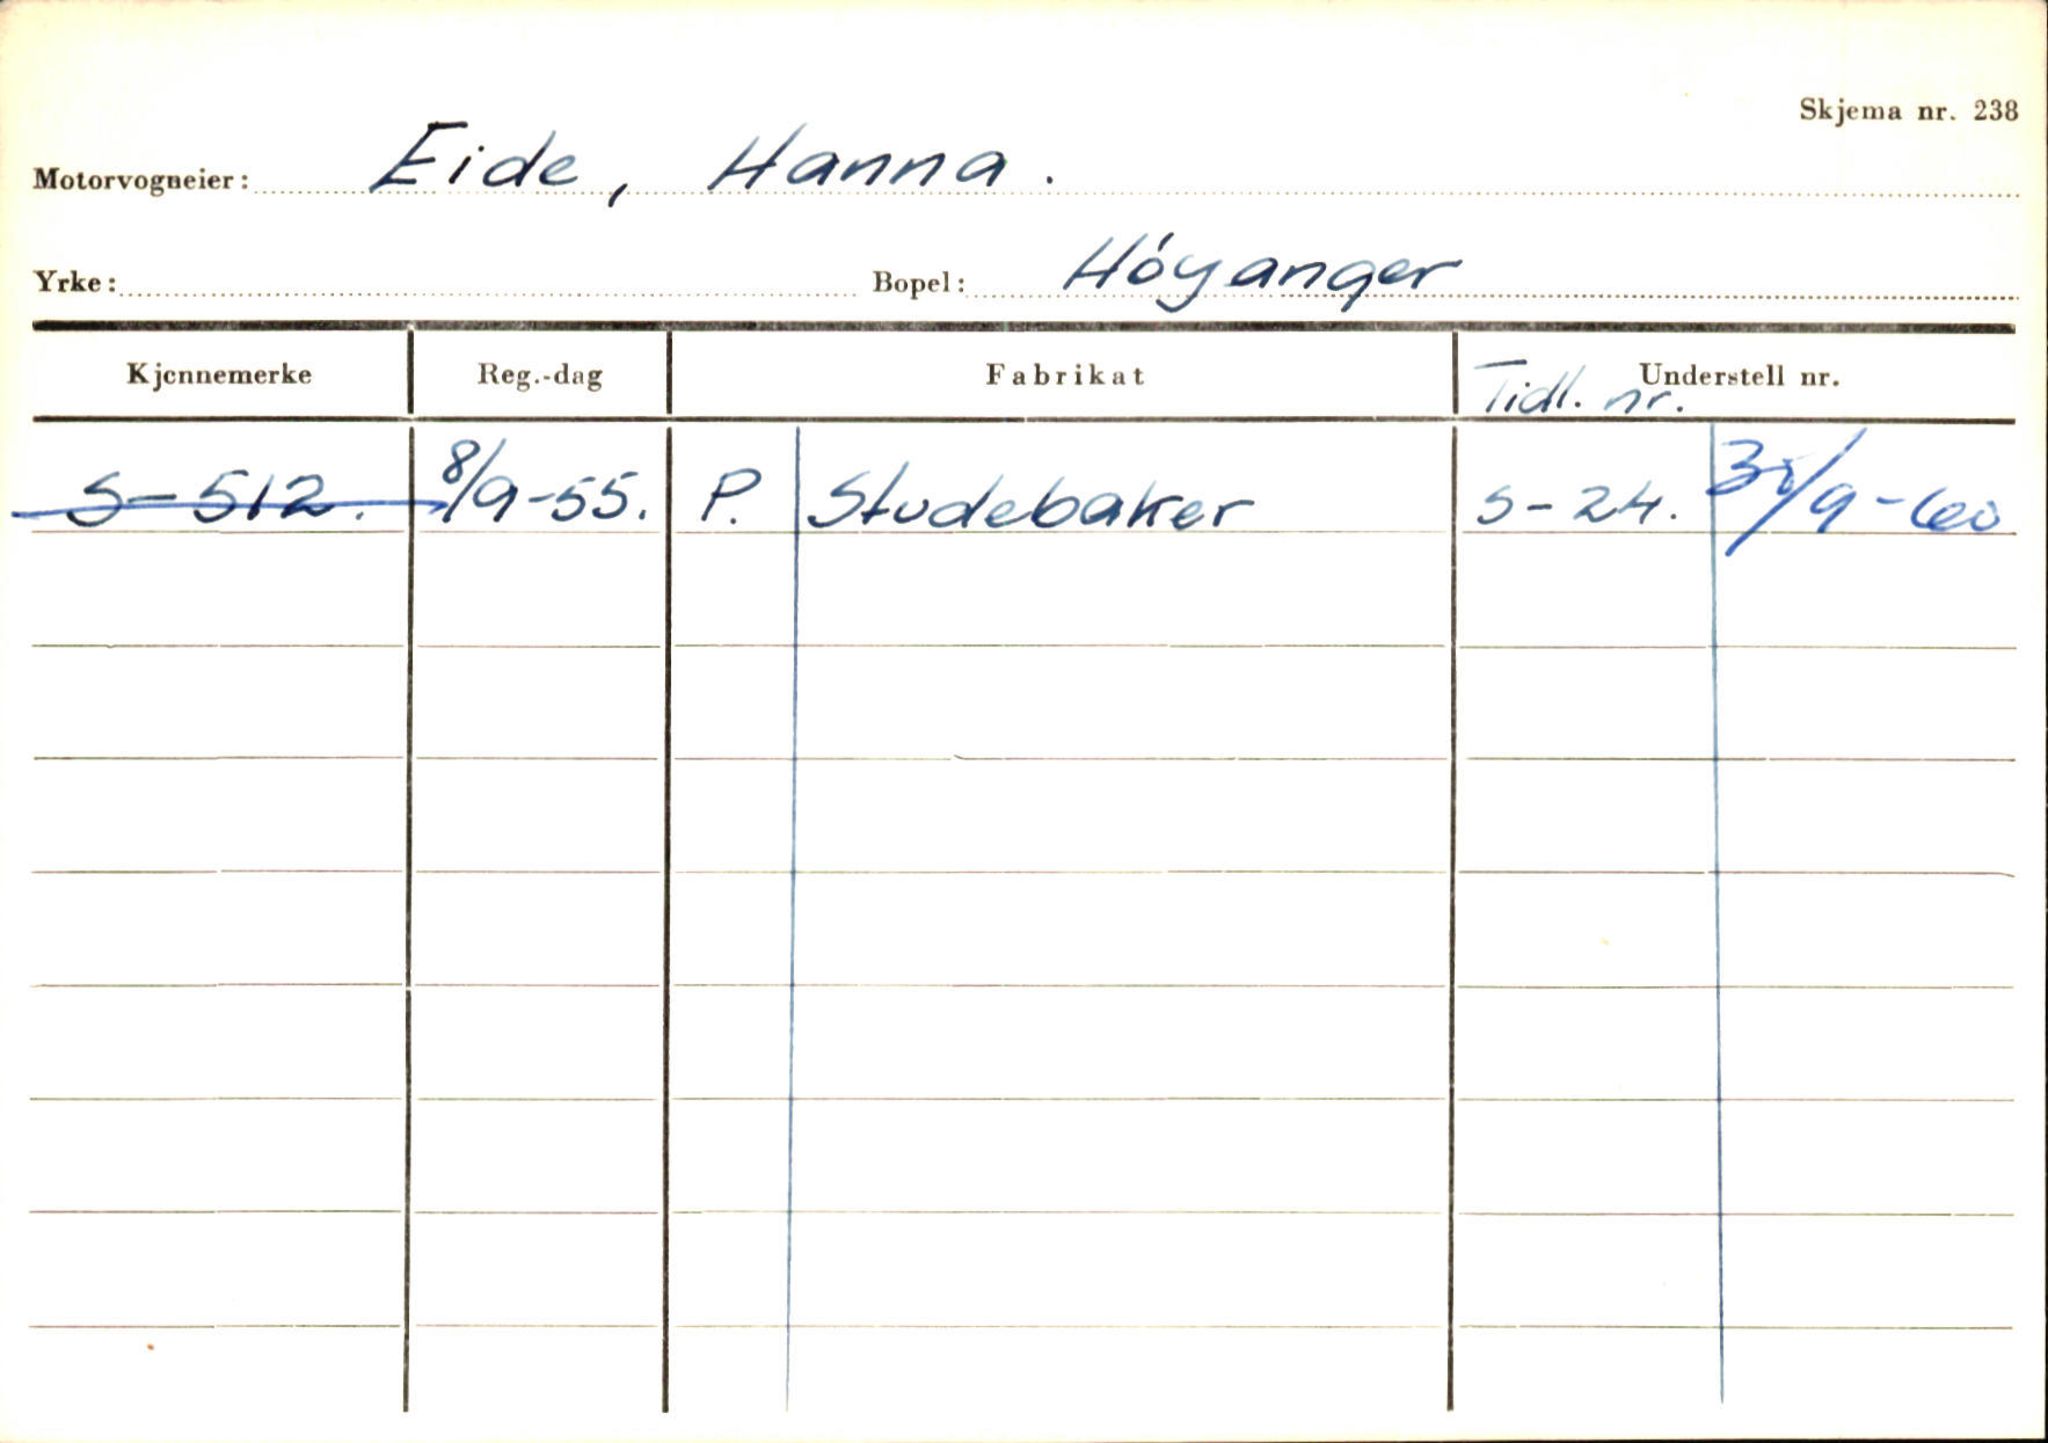 Skjema nr. 238
Motorvogneier: Eide, Hanna.
Yrke: Bopel: Höyanger
Kjennemerke Reg.-dag Fabrikat Understell nr.
Tidl. nr.
S-512. 8/9-55. P. Studebaker S-24. 30/9-60